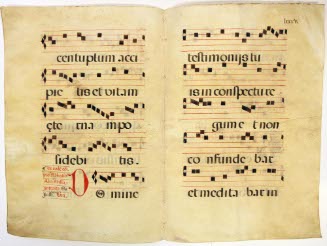 centuplum acci
pie tis et vitam
ęte rna mpo
sidebi tis.
O mine
testimonijs tu
is in conspectu re
gum e t non
co nfunde bar
et medita bar in